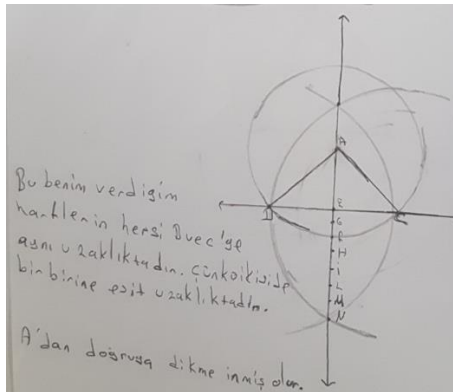 A
B
C
E
G
F
H
İ
L
M
N
Bu benim verdigim
harflerin hepsi B ve C'ye
aynı uzaklıktadır. Çünkü ikiside
birbirine eşit uzaklıktadır.
A'dan doğruya dikme inmiş olur.